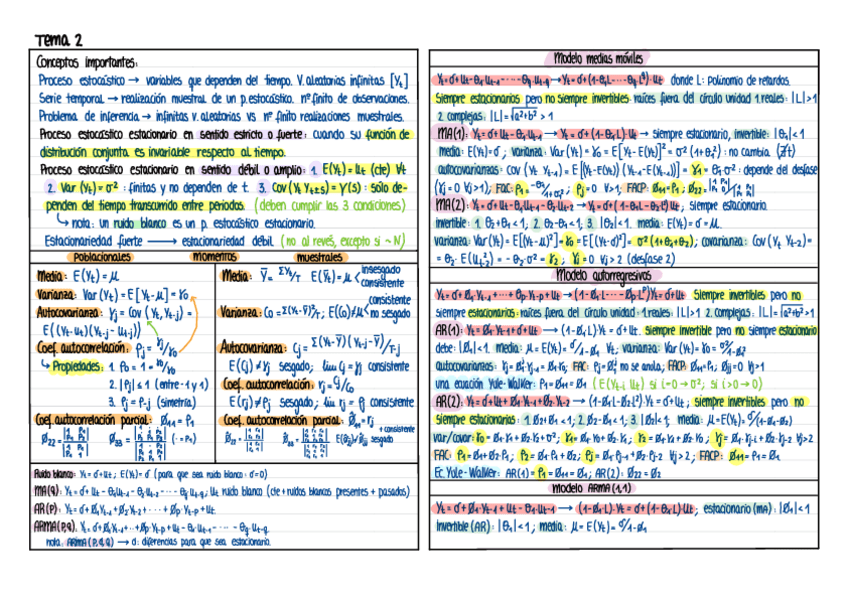 Tema 2
Conceptos importantes:
Proceso estocástico → variables que dependen del tiempo. V. aleatorias infinitas [Yt]
Serie temporal → realización muestral de un p. estocástico. nº finito de observaciones.
Problema de inferencia → infinitas v. aleatorias VS nº finito realizaciones muestrales.
Proceso estocástico estacionario en sentido estricto o fuerte: cuando su función de
distribución conjunta es invariable respecto al tiempo.
Proceso estocástico estacionario en sentido débil o amplio: 1. E(Yt) = ut (cte) ∀t
2. Var (Yt) = σ² : finitas y no dependen de t. 3. Cov (Yt, Yt+s) = γ(s) : sólo de-
penden del tiempo transcurrido entre periodos. (deben cumplir las 3 condiciones)
↳ nota: un ruido blanco es un p. estocástico estacionario.
Estacionariedad fuerte → estacionariedad débil (no al revés, excepto si ~ N)
Poblacionales momentos muestrales
Media: E(Yt) = μ
Varianza: Var (Yt) = E[Yt-μ] = γ0
Autocovarianza: γj = Cov (Yt, Yt-j) =
E((Yt-ut)(Yt-j - ut-j))
Coef. autocorrelación: ρj = γj/γ0
↳ Propiedades: 1. ρ0 = 1 = γ0/γ0
2. |ρj| ≤ 1 (entre -1 y 1)
3. ρj = ρ-j (simetría)
Coef. autocorrelación parcial: Ø11 = ρ1
Ø22 = Ø33 =
Media: Ȳ = ΣYt/T E(Ȳ) = μ < insesgado
consistente
Varianza: C0 = Σ(Yt-Ȳ)²/T; E(C0) ≠ γ0 < consistente
no sesgado
Autocovarianza: Cj = Σ(Yt-Ȳ)(Yt-j-Ȳ)/T-j
E(Cj) ≠ γj sesgado; lim Cj = γj consistente
Coef. autocorrelación: rj = Cj/C0
E(rj) ≠ ρj sesgado; lim rj = ρj consistente
Coef. autocorrelación parcial: Ø11 = r1
+ consistente
sesgado
Ruido blanco: Yt = σ + ut; E(Yt) = σ (para que sea ruido blanco: σ=0)
MA(q): Yt = σ + ut - θ1ut-1 - θ2ut-2 - ··· - θq ut-q; ut ruido blanco (cte + ruidos blancos presentes + pasados)
AR(p): Yt = σ + Ø1Yt-1 + Ø2Yt-2 + ··· + Øp Yt-p + ut
ARMA(p,q): Yt = σ + Ø1Yt-1 + ··· + Øp Yt-p + ut - θ1 ut-1 - ··· - θq ut-q
nota: ARIMA (p,d,q) → d: diferencias para que sea estacionario.
Modelo medias móviles
Yt = σ + ut - θ1 ut-1 - ··· - θq ut-q → Yt = σ + (1-θ1L - ··· θq L^q) · ut donde L: Polinomio de retardos.
Siempre estacionarios pero no siempre invertibles: raíces fuera del círculo unidad 1. reales: |L| > 1
2. complejas: |L| = √a²+b² > 1
MA(1): Yt = σ + ut - θ1ut-1 → Yt = σ + (1-θ1L) · ut → siempre estacionario, invertible: |θ1| < 1
media: E(Yt) = σ; varianza: Var (Yt) = γ0 = E[Yt - E(Yt)]² = σ² (1+θ1²) : no cambia
autocovarianzas: Cov (Yt, Yt-1) = E[(Yt-E(Yt))(Yt-1-E(Yt-1))] = γ1 = -θ1·σ² : depende del desfase
(γj = 0 ∀j > 1); FAC: ρ1 = -θ1/1+θ1²; ρj = 0 ∀j > 1; FACP: Ø11 = ρ1; Ø22 =
MA(2): Yt = σ + ut - θ1ut-1 - θ2ut-2 → Yt = σ + (1-θ1L-θ2L²) · ut; siempre estacionario.
invertible: 1. θ2+θ1 < 1; 2. θ2-θ1 < 1; 3. |θ2| < 1. media: E(Yt) = σ = μ.
varianza: Var (Yt) = E[(Yt-μ)²] = γ0 = E[(Yt-σ)²] = σ² (1+θ1+θ2); covarianza: Cov (Yt, Yt-2) =
= -θ2 · E(ut-2²) = -θ2 · σ² = γ2; γj = 0 ∀j > 2 (desfase 2)
Modelo autorregresivos
Yt = σ + Ø1 Yt-1 + ··· + Øp Yt-p + ut → (1-Ø1L - ··· Øp L^p) Yt = σ + ut Siempre invertibles pero no
siempre estacionarios: raíces fuera del círculo unidad: 1. reales: |L| > 1 2. complejas: |L| = √a²+b² > 1
AR(1): Yt = Ø1 Yt-1 + σ + ut → (1-Ø1L) · Yt = σ + ut. Siempre invertible pero no siempre estacionario
debe: |Ø1| < 1. media: μ = E(Yt) = σ/1-Ø1 ∀t; varianza: Var (Yt) = γ0 = σ²/1-Ø1²
autocovarianzas: FAC: ρj = Ø1^j no se anula; FACP: Ø11 = ρ1; Øjj = 0 ∀j > 1
una ecuación Yule-Walker: ρ1 = Ø11 = Ø1
AR(2): Yt = σ + Ø1Yt-1 + Ø2Yt-2 → (1-Ø1L-Ø2L²) · Yt = σ + ut; siempre invertibles pero no
siempre estacionarias: 1. Ø2+Ø1 < 1; 2. Ø2-Ø1 < 1; 3. |Ø2| < 1; media: μ = E(Yt) = σ/(1-Ø1-Ø2)
var/covar: γ0 = Ø1 γ1 + Ø2 γ2 + σ²; γ1 = Ø1 γ0 + Ø2 γ1; γ2 = Ø1 γ1 + Ø2 γ0; γj = Ø1 γj-1 + Ø2 γj-2 ∀j > 2
FACP: Ø11 = ρ1 = Ø1
Ec. Yule-Walker: AR(1) = ρ1 = Ø11 = Ø1; AR(2): Ø22 = Ø2
Modelo ARMA (1,1)
Yt = σ + Ø1 · Yt-1 + ut - θ1 · ut-1 → (1-Ø1L) · Yt = σ + (1-θ1L) · ut; estacionario (MA): |Ø1| < 1
Invertible (AR): |θ1| < 1; media: μ = E(Yt) = σ/1-Ø1